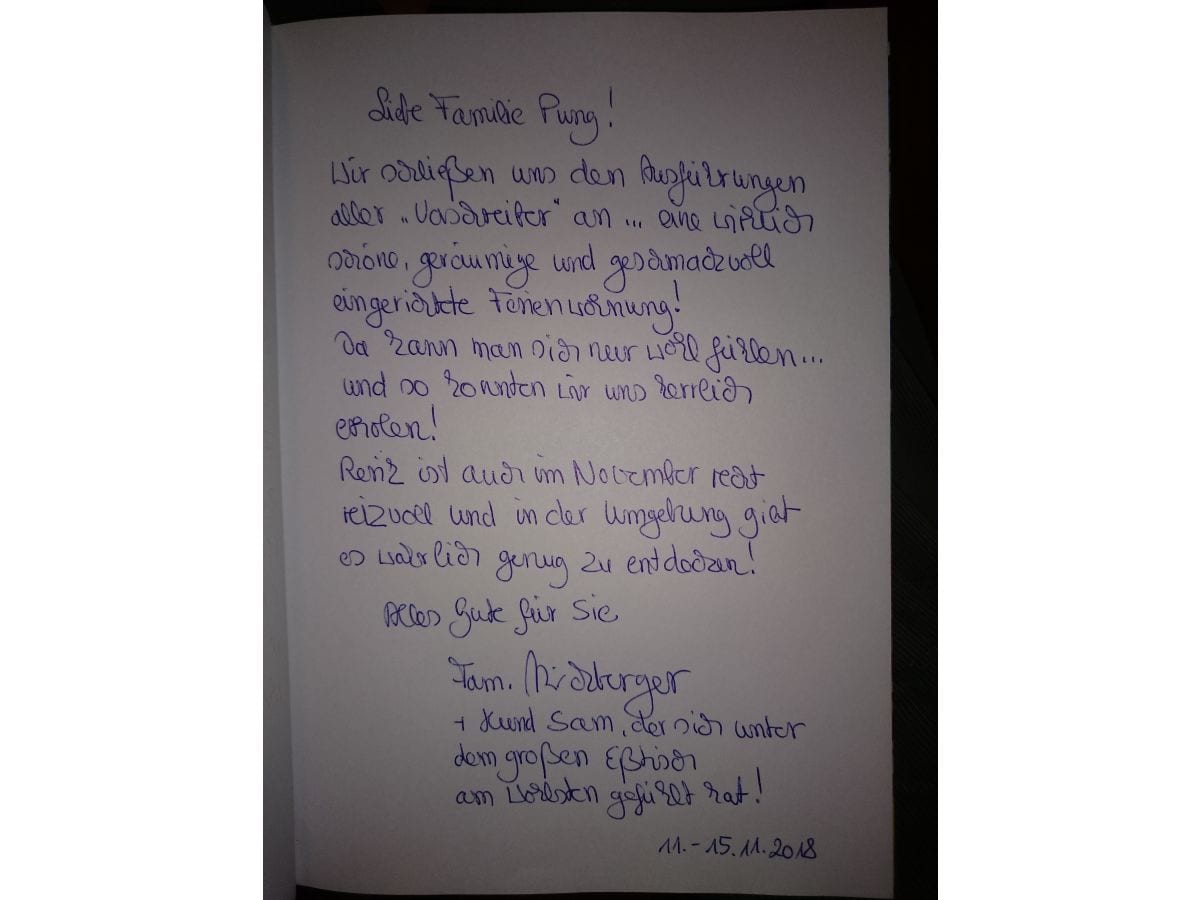 Liebe Familie Pung!
Wir schließen uns den Ausführungen
aller „Vorschreiber" an... eine wirklich
schöne, geräumige und geschmackvoll
eingerichtete Ferienwohnung!
Da kann man sich nur wohl fühlen...
und so konnten wir uns herrlich
erholen!
ist auch im November recht
reizvoll und in der Umgebung gibt
es wahrlich genug zu entdecken!
Alles Gute für Sie
Fam.
+ Hund Sam, der sich unter
dem großen Eßtisch
am wohlsten gefühlt hat!
11.-15.11.2018